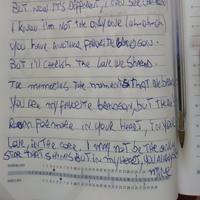 But now it's different, I can see clearly
I know I'm not the only one who
you have another favorite person.
But I'll cherish the love we shared.
The memories, the moments that we
you are my favorite person, but there
Room for me in your heart, in your
Love, in the core. I may not be the only
star that shines but in my heart, you always
mine